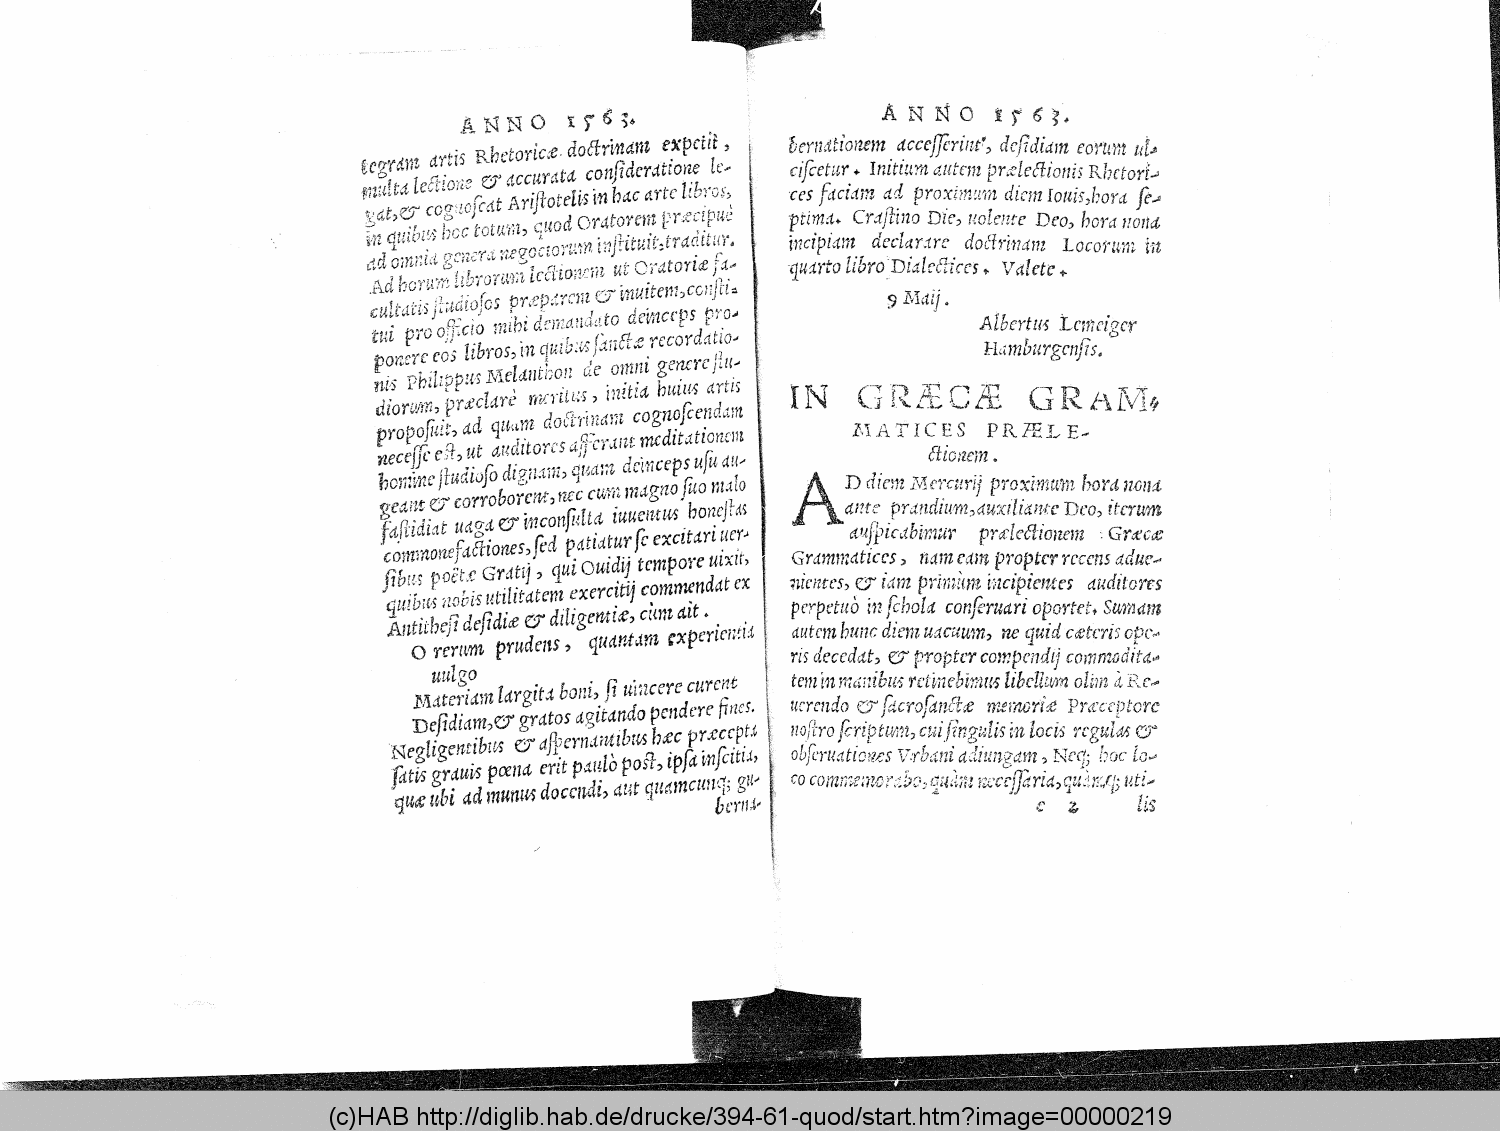 ANNO 1563.
tegram artis Rhetoricæ doctrinam expetit,
multa lectione & accurata consideratione le-
gat, & cognoscat Aristotelis in hac arte libros,
in quibus hoc totum, quod Oratorem præcipuè
ad omnia genera negociorum instituit, traditur.
Ad horum librorum lectionem ut Oratoriæ fa-
cultatis studiosos præparem & inuitem, consti-
tui pro officio mihi demandato deinceps pro-
ponere eos libros, in quibus sanctæ recordatio-
nis Philippus Melanthon de omni genere stu-
diorum, præclarè meritus, initia huius artis
proposuit, ad quam doctrinam cognoscendam
necesse est, ut auditores afferant meditationem
homine studioso dignam, quam deinceps usu au-
geant & corroborent, nec cum magno suo malo
fastidiat uaga & inconsulta iuuentus honestas
commonefactiones, sed patiatur se excitari uer-
sibus poëtæ Gratij, qui Ouidij tempore uixit,
quibus nobis utilitatem exercitij commendat ex
Antithesi desidiæ & diligentiæ, cùm ait.
O rerum prudens, quantam experientia
uulgo
Materiam largita boni, si uincere curent
Desidiam, & gratos agitando pendere fines.
Negligentibus & aspernantibus hæc præcepta
satis grauis pœna erit paulò post, ipsa inscitia,
quæ ubi ad munus docendi, aut quamcunq; gu-
berna-
ANNO 1563.
bernationem accesserint, desidiam eorum ul-
ciscetur. Initium autem prælectionis Rhetori-
ces faciam ad proximum diem Iouis, hora se-
ptima. Crastino Die, uolente Deo, hora nona
incipiam declarare doctrinam Locorum in
quarto libro Dialectices. Valete.
9 Maij.
Albertus Lemeiger
Hamburgensis.
IN GRÆCÆ GRAM-
MATICES PRÆLE-
ctionem.
AD diem Mercurij proximum hora nona
ante prandium, auxiliante Deo, iterum
auspicabimur prælectionem Græcæ
Grammatices, nam eam propter recens adue-
nientes, & iam primùm incipientes auditores
perpetuò in schola conseruari oportet. Sumam
autem hunc diem uacuum, ne quid cæteris ope-
ris decedat, & propter compendij commodita-
tem in manibus retinebimus libellum olim à Re-
uerendo & sacrosanctæ memoriæ Præceptore
nostro scriptum, cui singulis in locis regulas &
obseruationes Vrbani adiungam, Neq; hoc lo-
co commemorabo, quàm necessaria, quamq; uti-
c 2 lis
(c)HAB http://diglib.hab.de/drucke/394-61-quod/start.htm?image=00000219